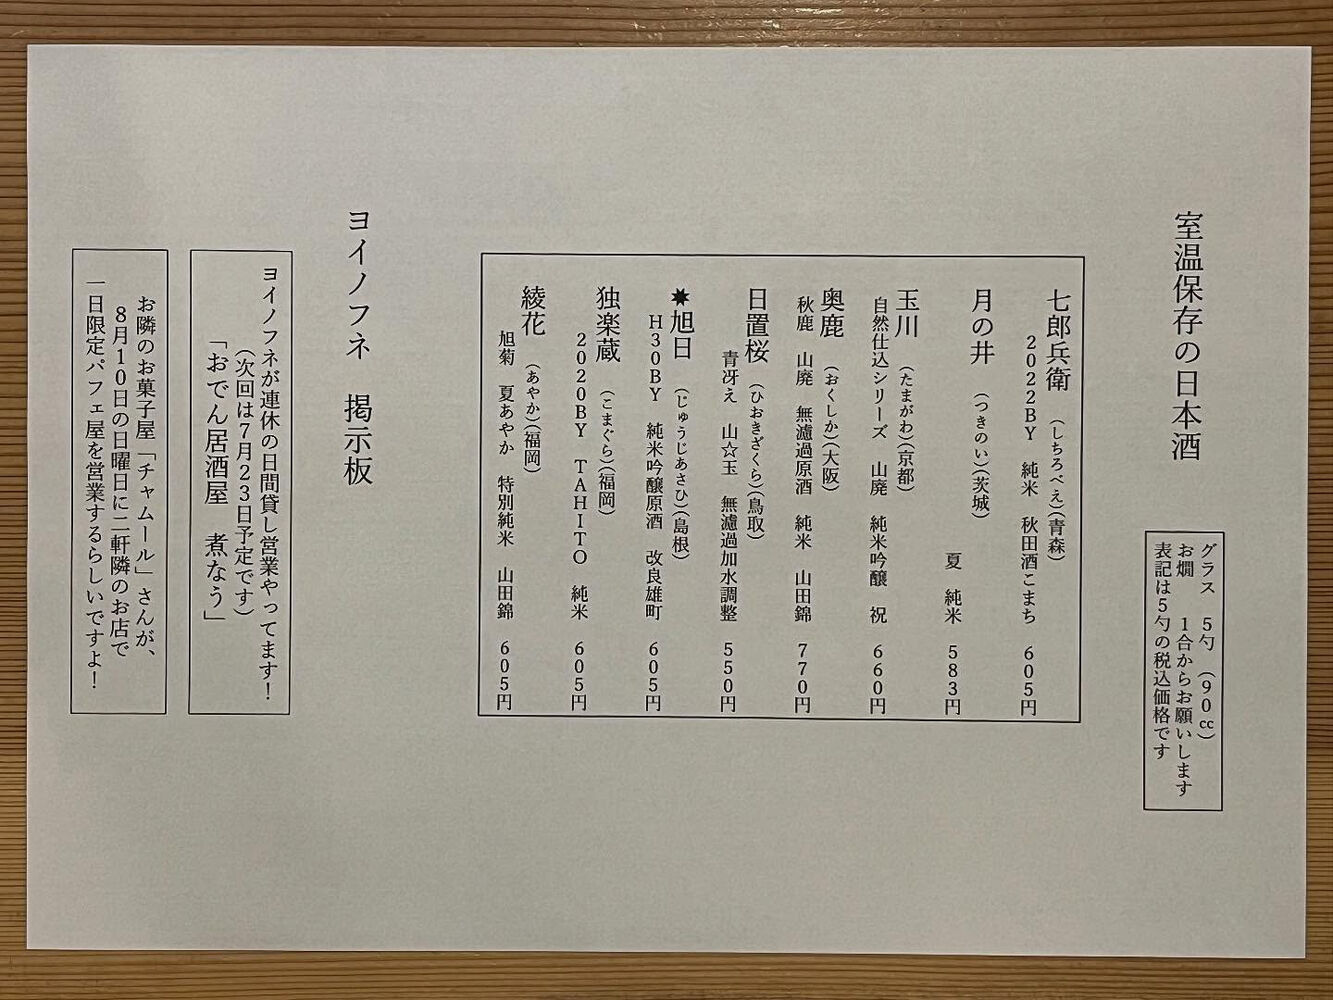 室温保存の日本酒
グラス　5勺　（90㏄）
お燗　1合からお願いします
表記は5勺の税込価格です
七郎兵衛　（しちろべえ）（青森）
2022BY　純米　秋田酒こまち　605円
月の井　（つきのい）（茨城）
夏　純米　583円
玉川　（たまがわ）（京都）
自然仕込シリーズ　山廃　純米吟醸　祝　660円
奥鹿　（おくしか）（大阪）
秋鹿　山廃　無濾過原酒　純米　山田錦　770円
日置桜　（ひおきざくら）（鳥取）
青冴え　山☆玉　無濾過加水調整　550円
✸旭日　（じゅうじあさひ）（島根）
H30BY　純米吟醸原酒　改良雄町　605円
独楽蔵　（こまぐら）（福岡）
2020BY　TAHITO　純米　605円
綾花　（あやか）（福岡）
旭菊　夏あやか　特別純米　山田錦　605円
ヨイノフネ　掲示板
ヨイノフネが連休の日間貸し営業やってます！
（次回は7月23日予定です）
「おでん居酒屋　煮なう」
お隣のお菓子屋「チャムール」さんが、
8月10日の日曜日に二軒隣のお店で
一日限定パフェ屋を営業するらしいですよ！